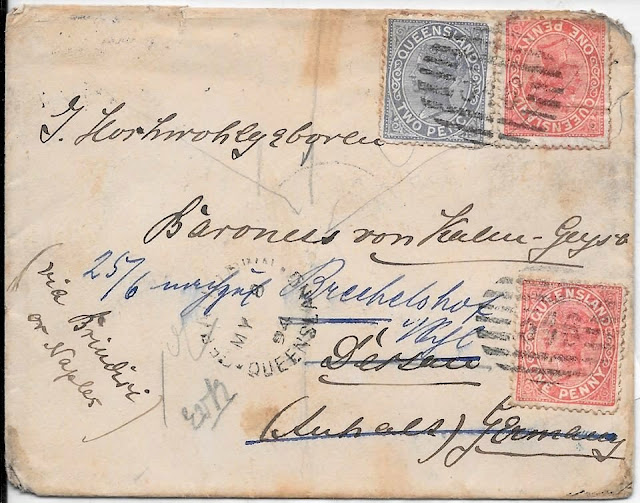 QUEENSLAND
TWO PENCE
QUEENSLAND
ONE PENNY
Hochwohlgeboren
Baroness von
25/6 Brechelshof
MY 8
94
QUEENSLAND
(via Brindisi
or Naples)
QUEENSLAND
ONE PENNY
Dessau
(Anhalt) Germany